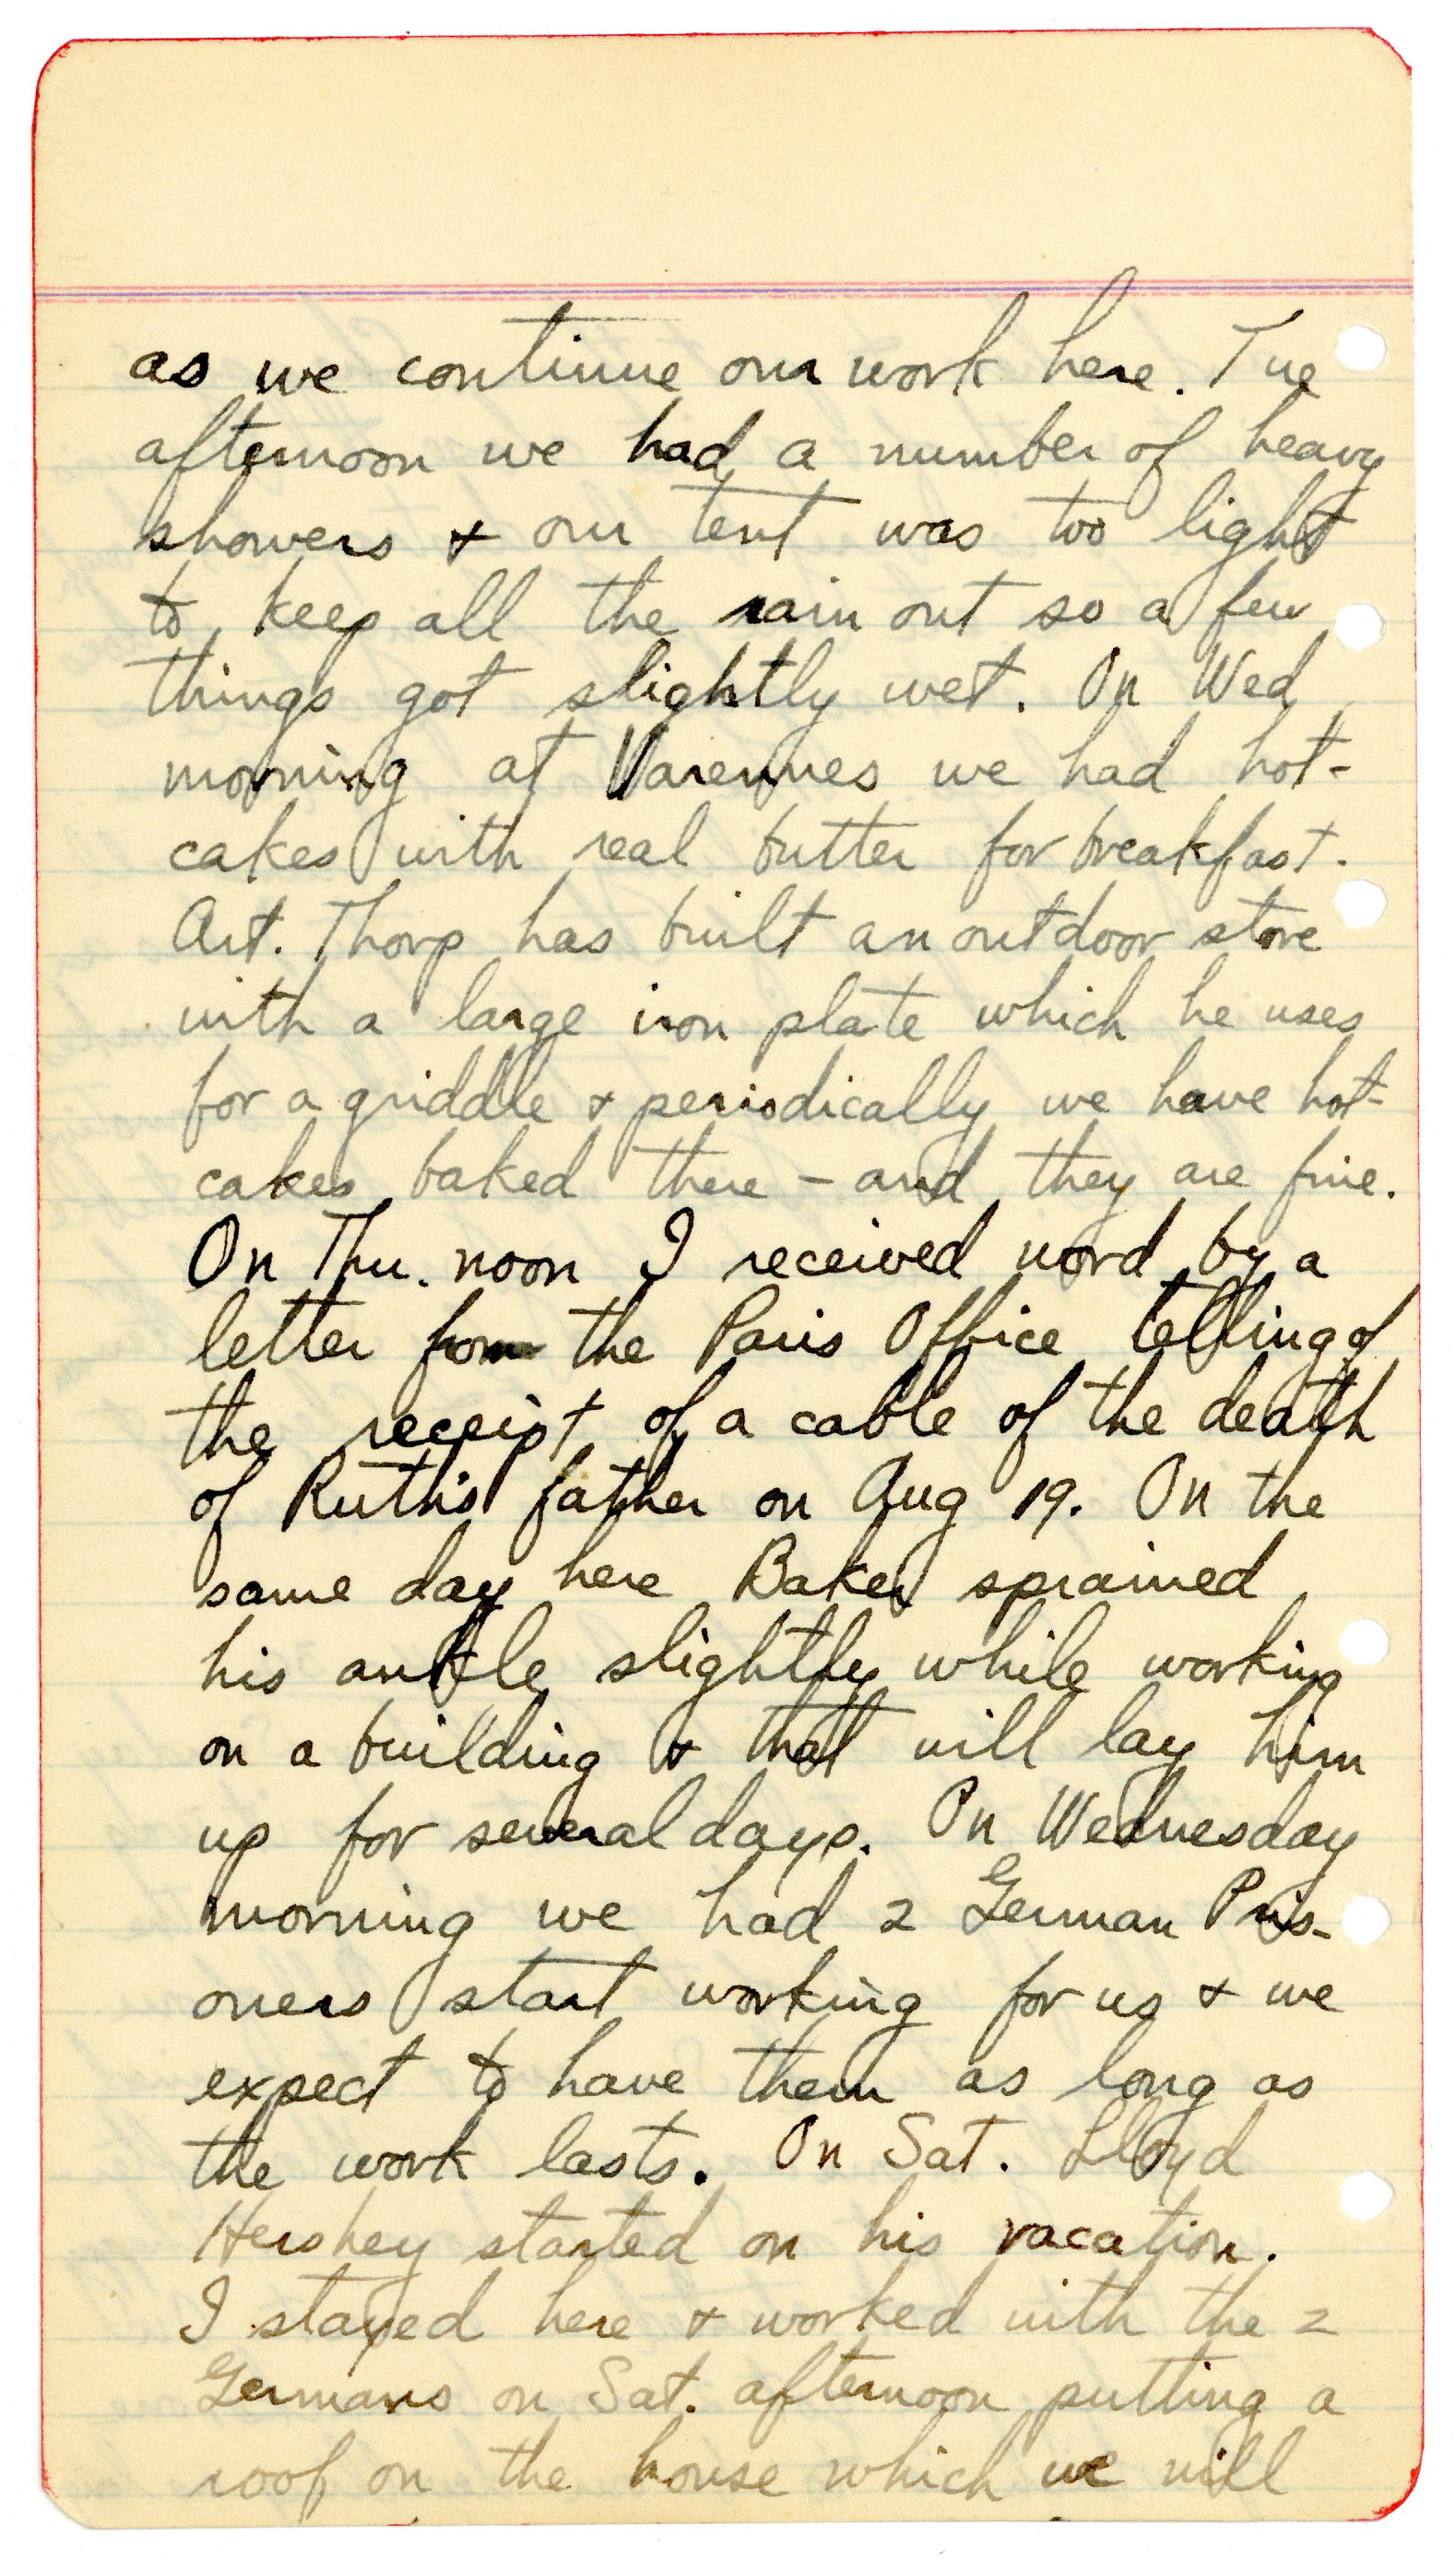 as we continue our work here. Tue
afternoon we had a number of heavy
showers & our tent was too light
to keep all the rain out so a few
things got slightly wet. On Wed
morning at Varennes we had hot-
cakes with real butter for breakfast.
Art. Thorp has built an outdoor stove
with a large iron plate which he uses
for a griddle & periodically we have hot-
cakes baked there – and they are fine.
On Thu. noon I received word by a
letter from the Paris Office telling of
the receipt of a cable of the death
of Ruth's father on Aug 19. On the
same day here Baker sprained
his ankle slightly while working
on a building & that will lay him
up for several days. On Wednesday
morning we had 2 German Pris-
oners start working for us & we
expect to have them as long as
the work lasts. On Sat. Lloyd
Hershey started on his vacation.
I stayed here & worked with the 2
Germans on Sat. afternoon putting a
roof on the house which we will